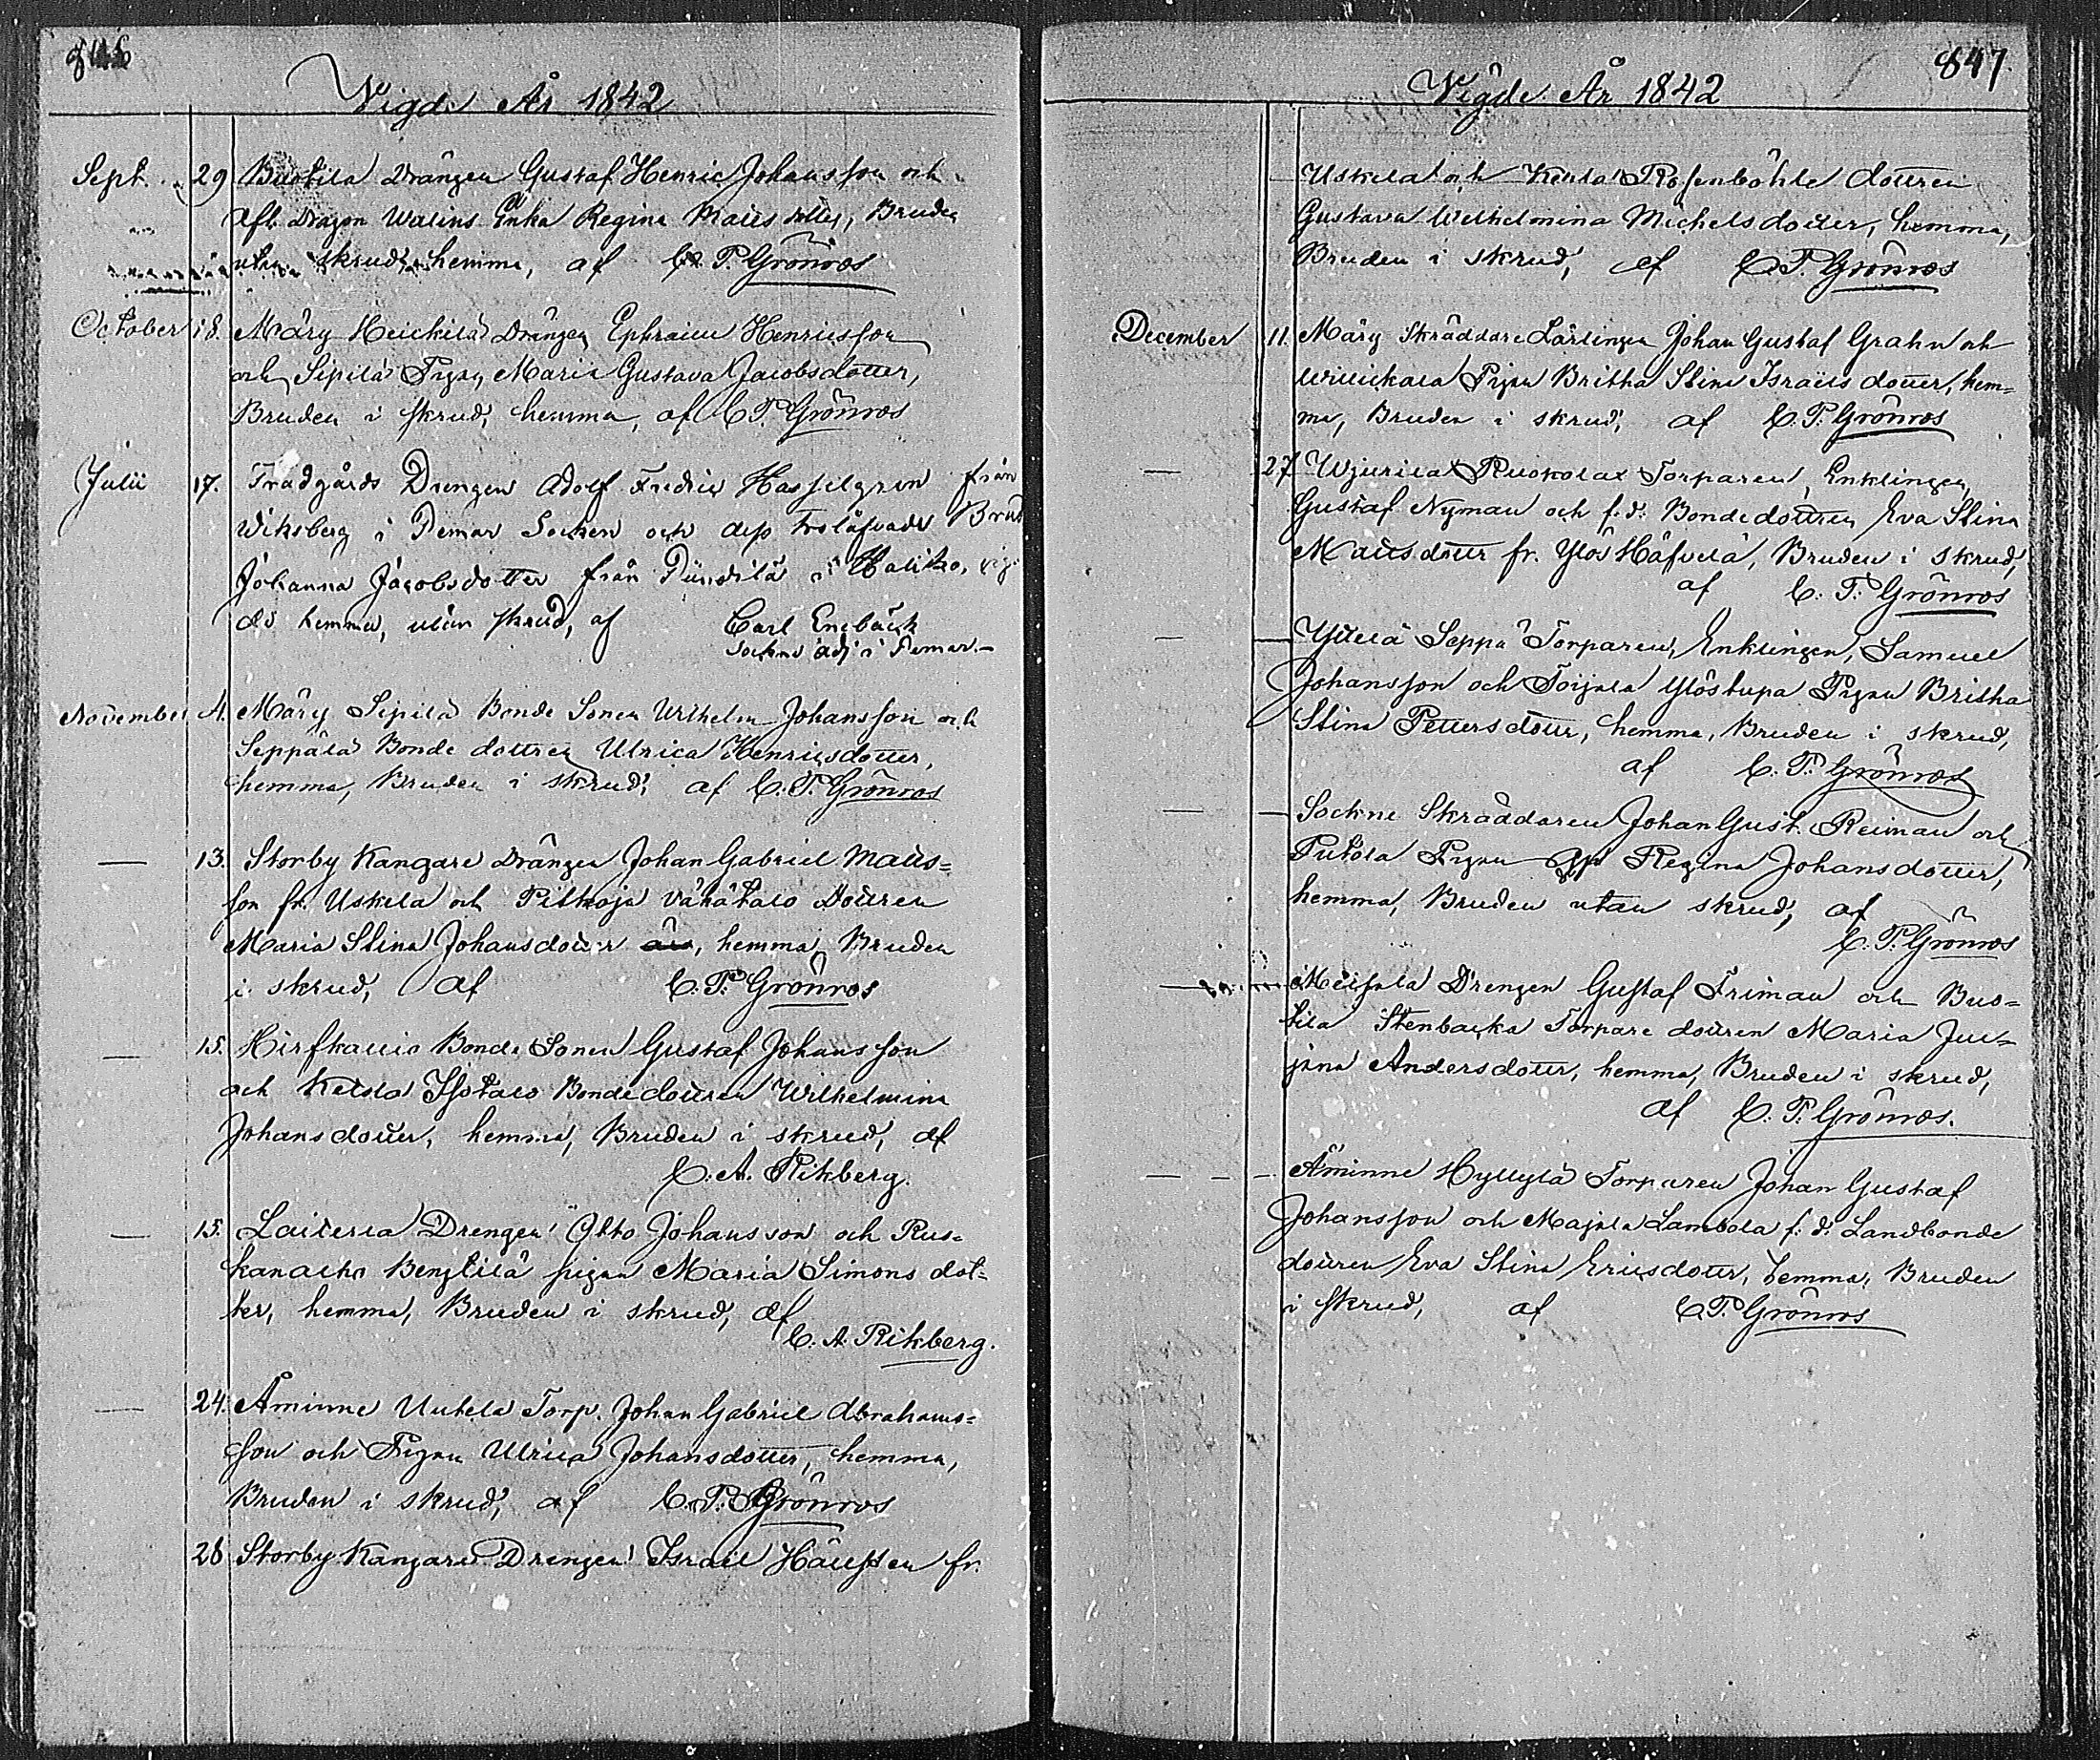 846
Vigde År 1842
Sept. 29 Buotila Drängen Gustaf Henric Johansson och
afl. Dragon Walins Enka Regina Matts dotter, Bruden
utan skrud, hemma, af C. P. Grönroos
October 18. Märy Heickilä Drängen Ephraim Henricsson
och Sipilä Pigan Maria Gustava Jacobsdotter,
Bruden i skrud, hemma, af C. P. Grönroos
Julii 17. Trädgårds Drengen Adolf Fredric Hasselgren från
Wiksberg i Pemar Socken och dess troläfvade Brud
Johanna Jacobsdotter från Pundilä i Haliko, vig-
de hemma, utan skrud, af Carl Enebäck
Sockne adj i Pemar.
November 4. Märy Sipilä Bonde Sonen Wilhelm Johansson och
Seppälä Bonde dottren Ulrica Henricsdotter,
hemma, Bruden i skrud, af C. P. Grönroos
— 13. Storby Kangare Drängen Johan Gabriel Matts-
son fr. Uskela och Pitkoja Vähätalo Dottren
Maria Stina Johansdotter, hemma, Bruden
i skrud, af C. P. Grönroos
— 15. Hirfkallio Bonde Sonen Gustaf Johansson
och Ketola Isotalo Bondedottren Wilhelmina
Johansdotter, hemma, Bruden i skrud, af
C. A. Rikberg.
— 15. Laiterla Drengen Otto Johansson och Rus-
kanaho Bengtilä pigan Maria Simons dot-
ter, hemma, Bruden i skrud, af
C. A. Rikberg.
— 24. Åminne Uutela Torp. Johan Gabriel Abrahams-
son och Pigan Ulrica Johansdotter, hemma,
Bruden i skrud, af C. P. Grönroos
28 Storby Kangare Drengen Israel fr.
847
Vigde År 1842
Uskela och Rosenböhle dottren
Gustava Wilhelmina Michelsdotter, hemma,
Bruden i skrud, af C. P. Grönroos
December 11. Märy Skräddare Lärlingen Johan Gustaf Grahn och
Willickala Pigan Britha Stina Israels dotter, hem-
ma, Bruden i skrud, af C. P. Grönroos
— 27 Wjurila Ruokolax Torparen, Enklingen,
Gustaf Nyman och f. d. Bondedottren Eva Stina
Mattsdotter fr. Ylös Häfvelä, Bruden i skrud,
af C. P. Grönroos
— — Yttelä Seppä Torparen, Enklingen, Samuel
Johansson och Toijala Ylöstupa Pigan Britha
Stina Pettersdotter, hemma, Bruden i skrud,
af C. P. Grönroos
— — Sockne Skräddaren Johan Gust. Reiman och
Putola Pigan Regina Johansdotter,
hemma, Bruden utan skrud, af
C. P. Grönroos
— Meisala Drengen Gustaf Friman och Buo-
tila Stenbacka Torpare dottren Maria Jus-
jina Andersdotter, hemma, Bruden i skrud,
af C. P. Grönroos.
— — Åminne Hyllylä Torparen Johan Gustaf
Johansson och Majala Lambola f. d. Landbonde
dottren Eva Stina Ericsdotter, hemma, Bruden
i skrud, af C. P. Grönroos